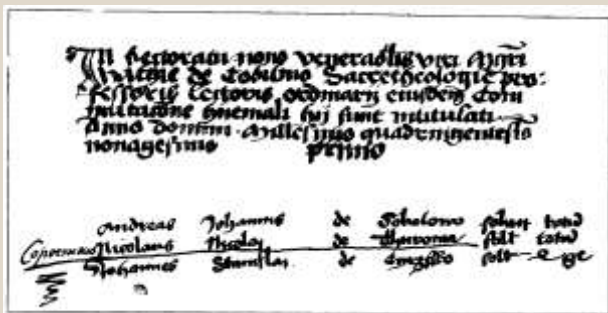 In Rectoratu nono venerabilis viri Mgri
Mathie de Cobilino Sacretheologie pro=
fessoris Lectoris ordinarij eiusdem Com
mutatione hiemali hij sunt intitulati
Anno domini Millesimo quadringentesimo
nonagesimo primo
Andreas Johannis de solvit totum
Copernicus Nicolaus Nicolai de Thuronia solvit totum
Johannes Stanislai de